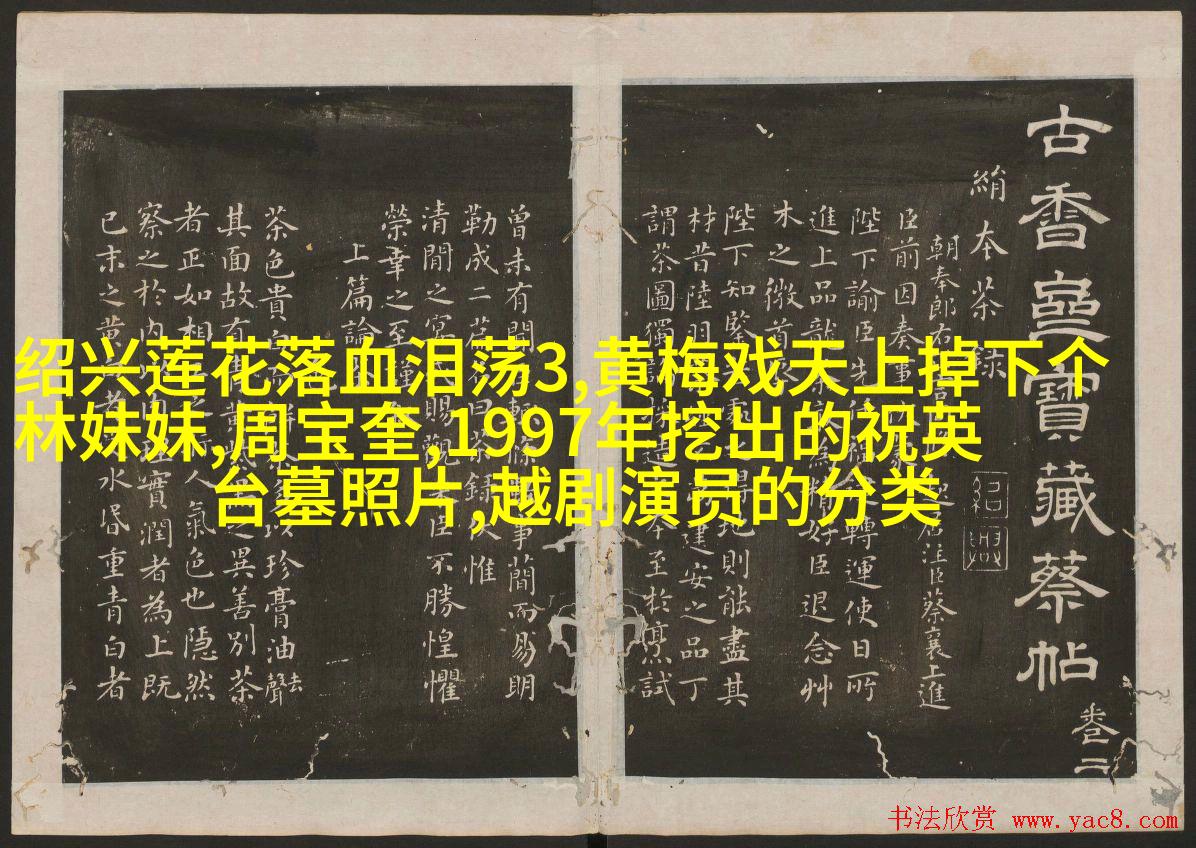 绍兴莲花落血泪荡3,黄梅戏天上掉下个
林妹妹,周宝奎,1997年挖出的祝英
台墓照片,越剧演员的分类
古香齋寶藏蔡帖
卷二
絹本茶錄
紹興
朝奉郎右正 注臣蔡襄上進
臣前因奏事
陛下諭臣先 轉運使日所
進上品龍茶 精好臣退念艸
木之微首
陛下知鑒 得地則能盡其
材昔陸羽 建安之品丁
謂茶圖獨 至於烹試
曾未有聞 事簡而易明
勒成二 曰茶錄伏惟
清閒之宴 賜觀 臣不勝惶懼
榮幸之至
上篇論茶
茶色貴白 珍膏油去聲
其面故有 之異善別茶
者正如相 人氣色也隱然
察之於內 實潤者為上既
已末之黃 者 水昏重青白者
书法欣赏 www.yac8.com